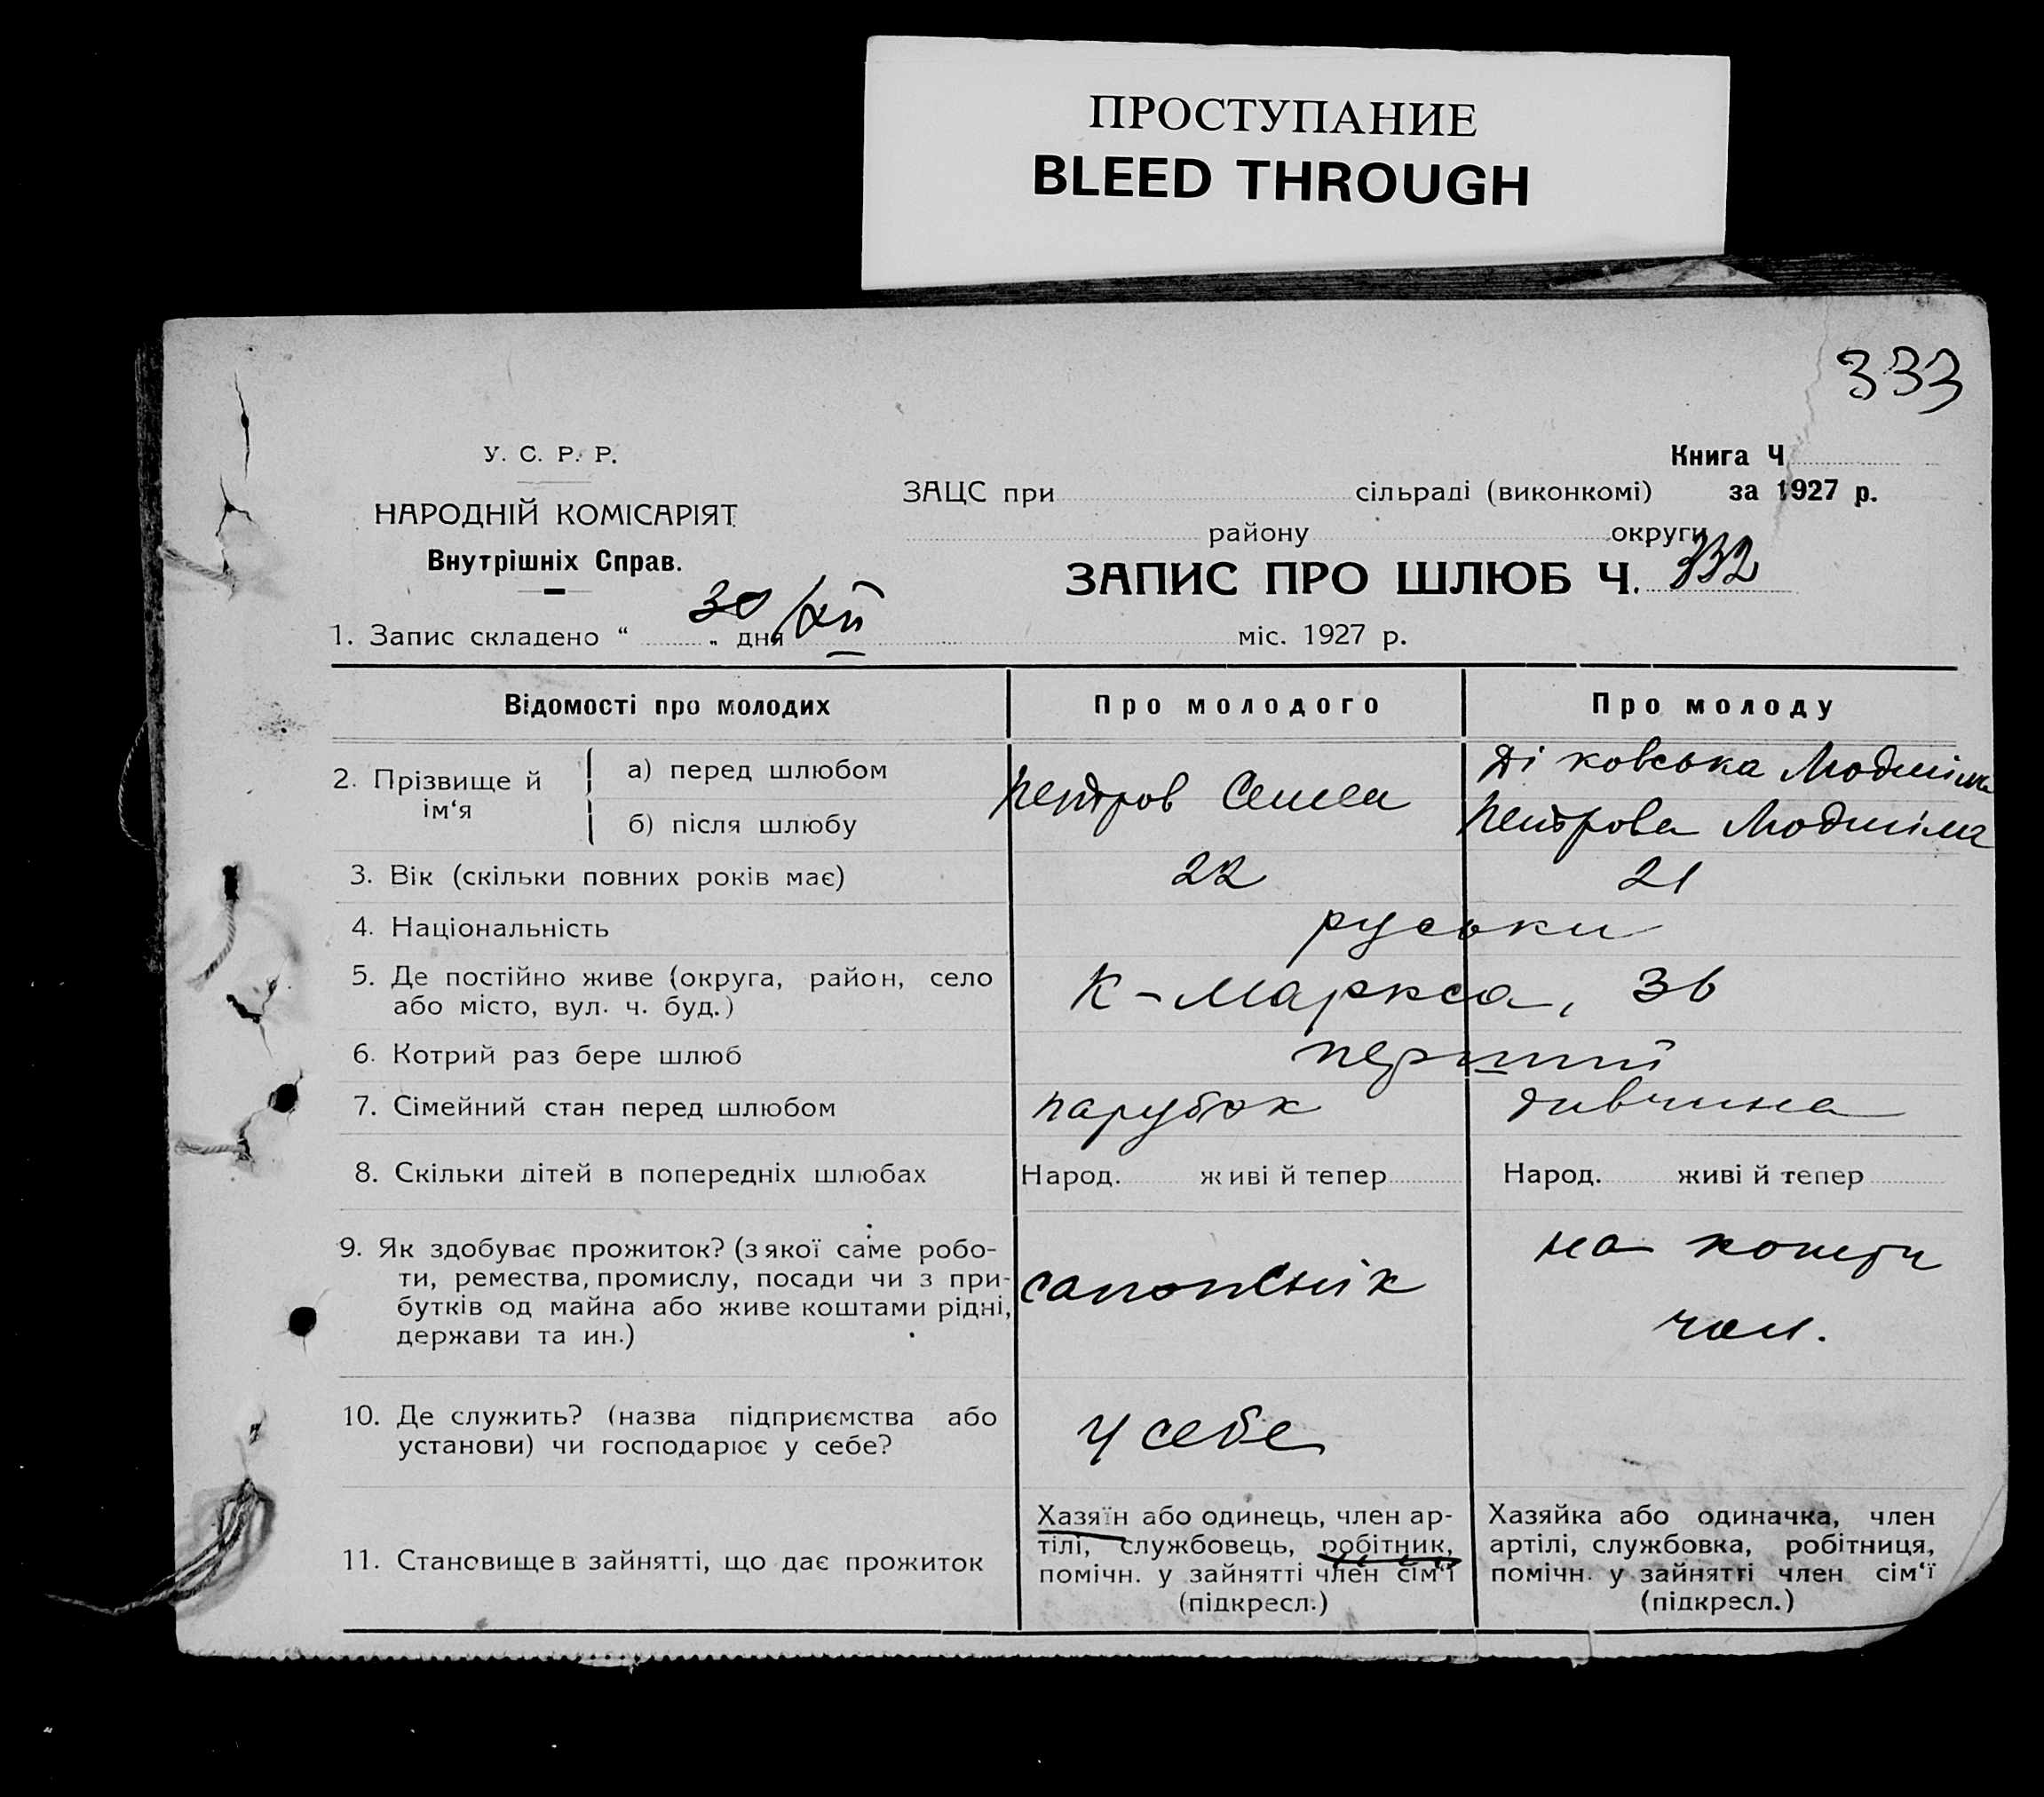 ПРОСТУПАНИЕ
BLEED THROUGH
333
У. С. Р. Р.
НАРОДНІЙ КОМІСАРІЯТ
Внутрішніх Справ.
Книга Ч
ЗАЦС при сільраді (виконкомі) за 1927 р.
району округи
ЗАПИС ПРО ШЛЮБ Ч. 332
1. Запис складено “ 30 „ дня XII міс. 1927 р.
Відомості про молодих Про молодого Про молоду
2. Прізвище й ім‘я
а) перед шлюбом Петров Семен Діковська Людміла
б) після шлюбу Петрова Людміла
3. Вік (скільки повних років має) 22 21
4. Національність руськи
5. Де постійно живе (округа, район, село К-Маркса, 36
або місто, вул. ч. буд.)
6. Котрий раз бере шлюб перший
7. Сімейний стан перед шлюбом парубок дивчина
8. Скільки дітей в попередніх шлюбах Народ. живі й тепер Народ. живі й тепер
9. Як здобуває прожиток? (з якої саме робо-
ти, ремества, промислу, посади чи з при-
бутків од майна або живе коштами рідні,
держави та ин.)
сапожнік
на кошти
чол.
10. Де служить? (назва підприємства або
установи) чи господарює у себе?
у себе
11. Становище в зайнятті, що дає прожиток
Хазяїн або одинець, член ар-
тілі, службовець, робітник,
помічн. у зайнятті член сім‘ї
(підкресл.)
Хазяйка або одиначка, член
артілі, службовка, робітниця,
помічн. у зайнятті член сім‘ї
(підкресл.)